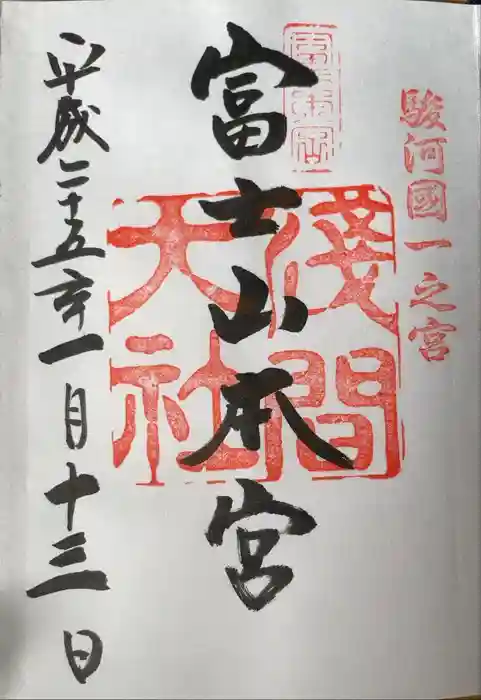 駿河國一之宮
富士山本宮
淺間大社
平成二十五年一月十三日